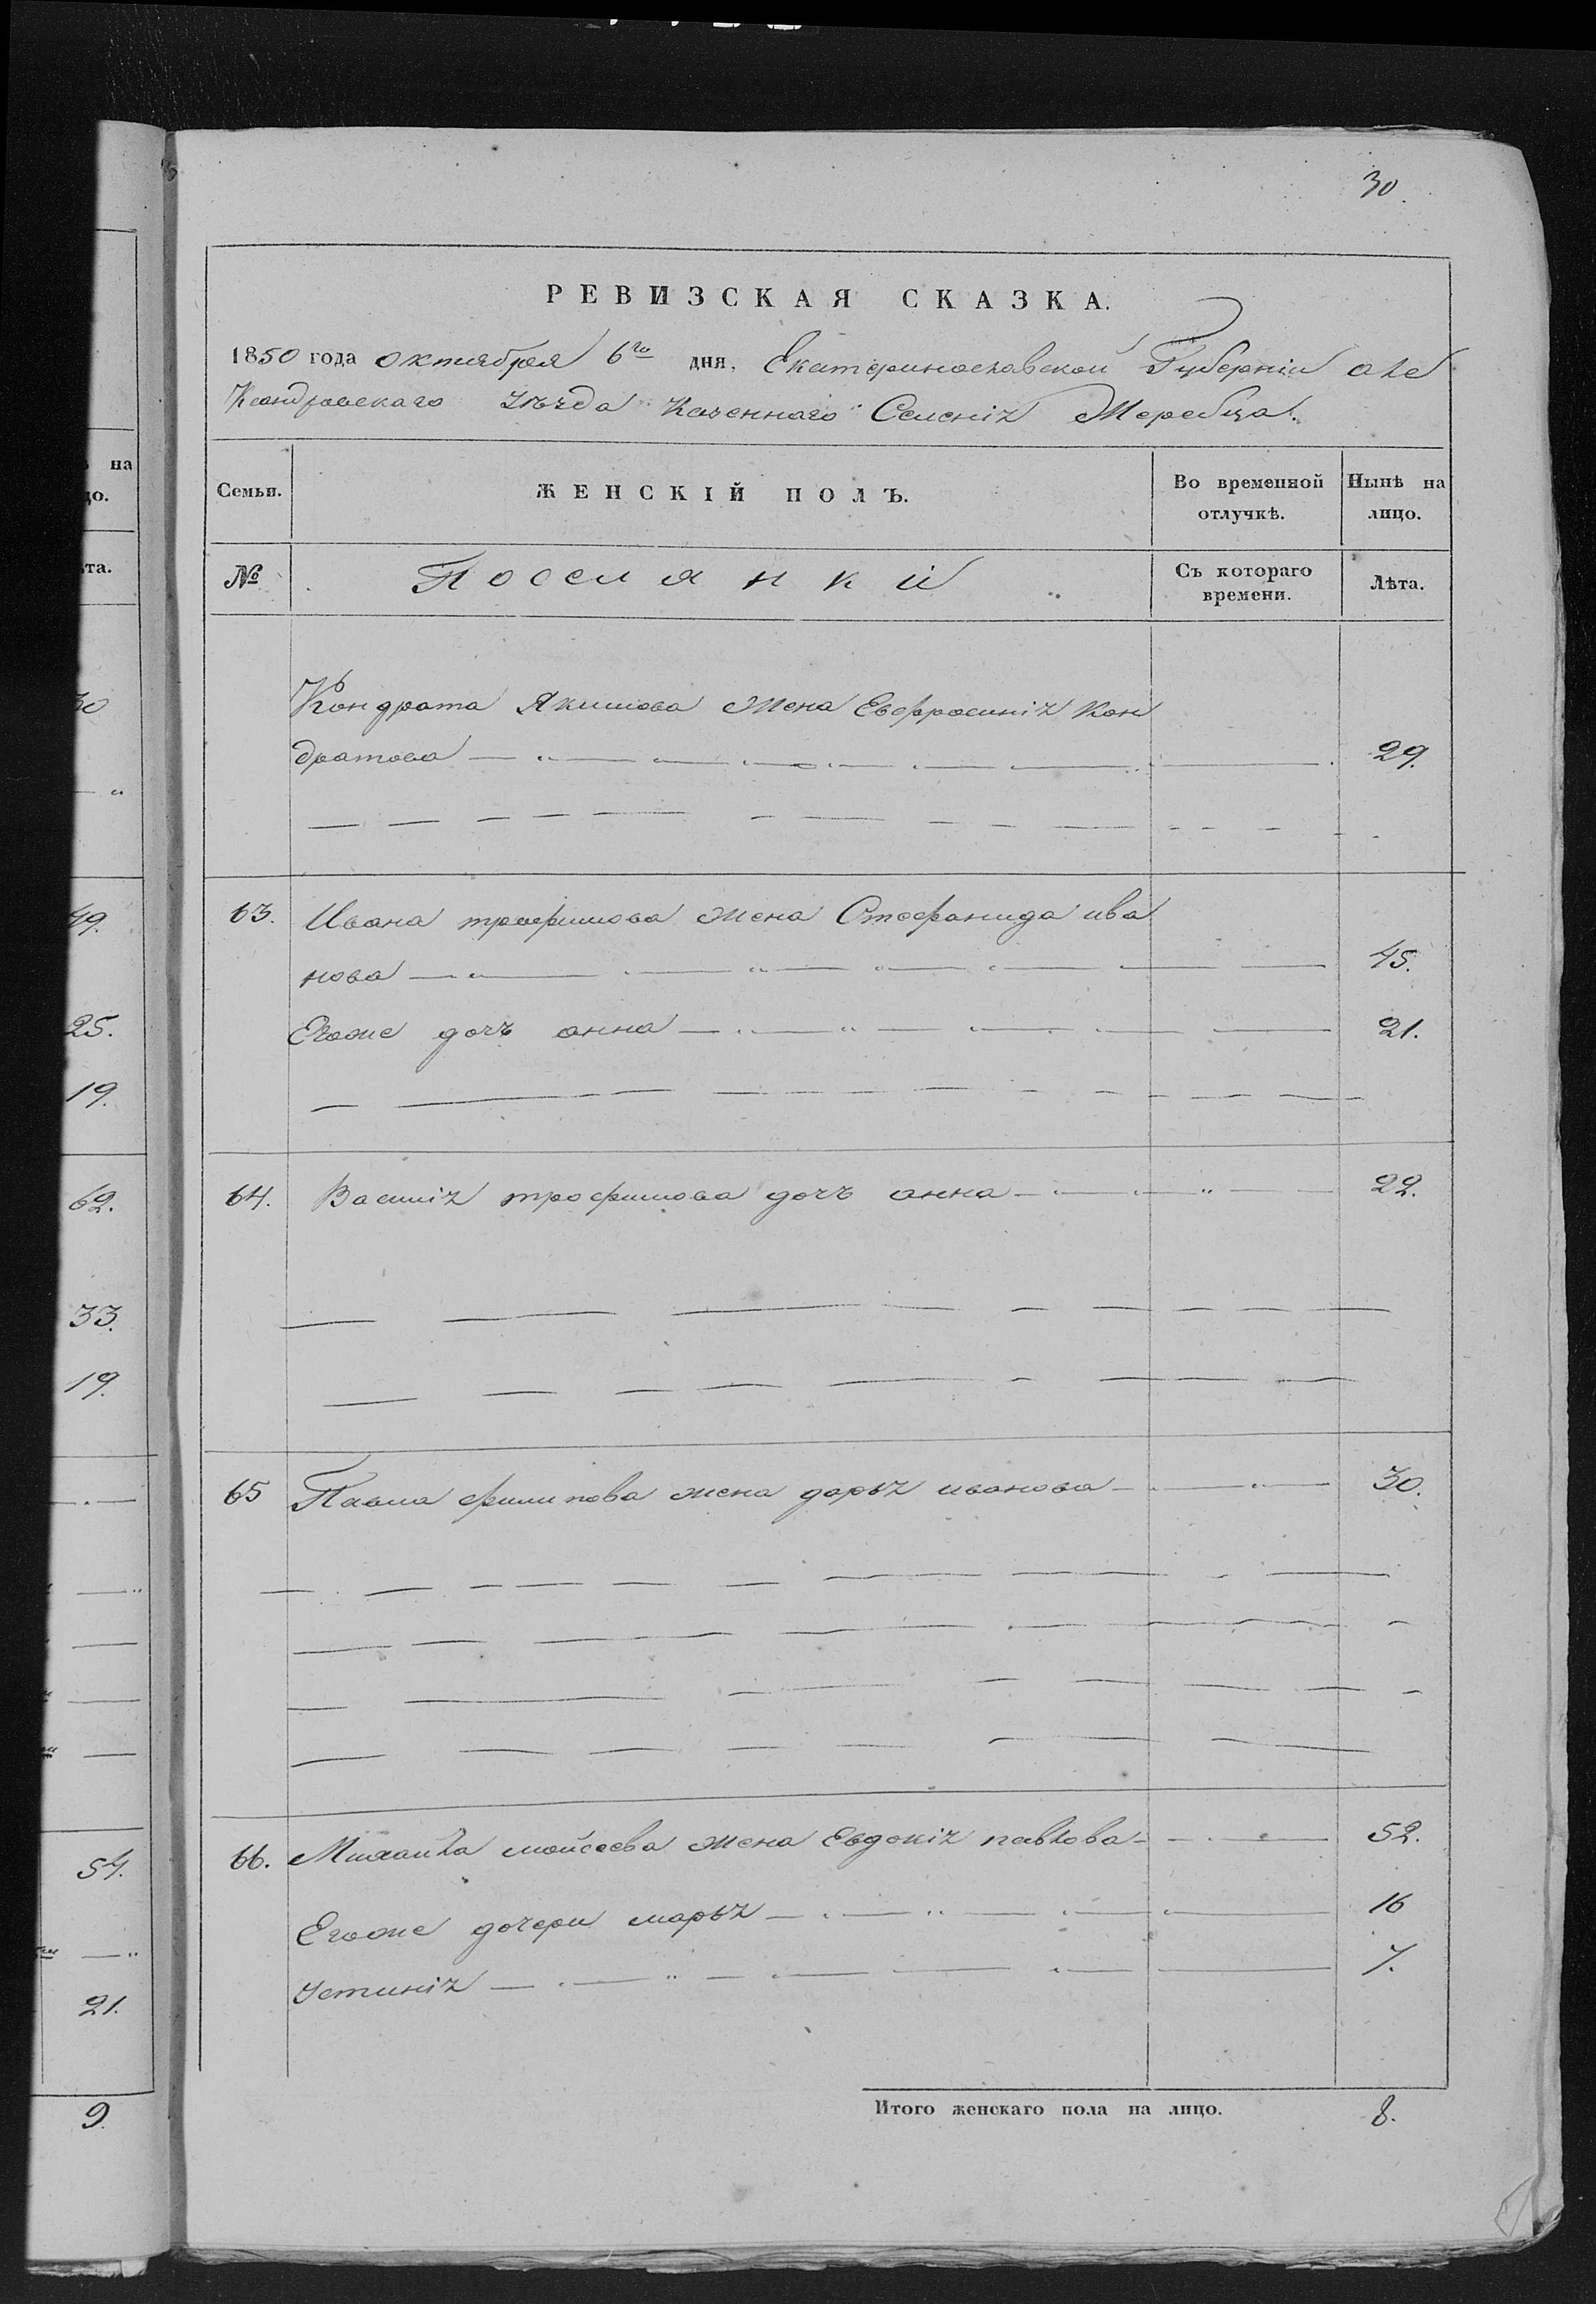 30.
РЕВИЗСКАЯ СКАЗКА.
1850 года октября 6го дня, Екатеринославской Губерніи але
Ксандровскаго уѣзда Казеннаго Селенія Жеребца.
ь на
цо.
Семьи.
ЖЕНСКІЙ ПОЛЪ.
Во временной
отлучкѣ.
Нынѣ на
лицо.
ѣта.
№
Поселянкі
Съ котораго
времени.
Лѣта.
30
Кондрата Якимова жена Евфросинія Кон
дратова 29.
49.
63. Ивана трофимова жена Стефанида ива
нова 45.
25.
Егоже дочь анна 21.
19.
62.
64. Василія трофимова дочь анна 22.
33.
19.
65 Павла филипова жена дарья иванова 30.
54.
66. Михаила мойсеева жена Евдокія павлова 52.
Егоже дочери марья 16
21.
устинія 7.
9.
Итого женскаго пола на лицо. 8.